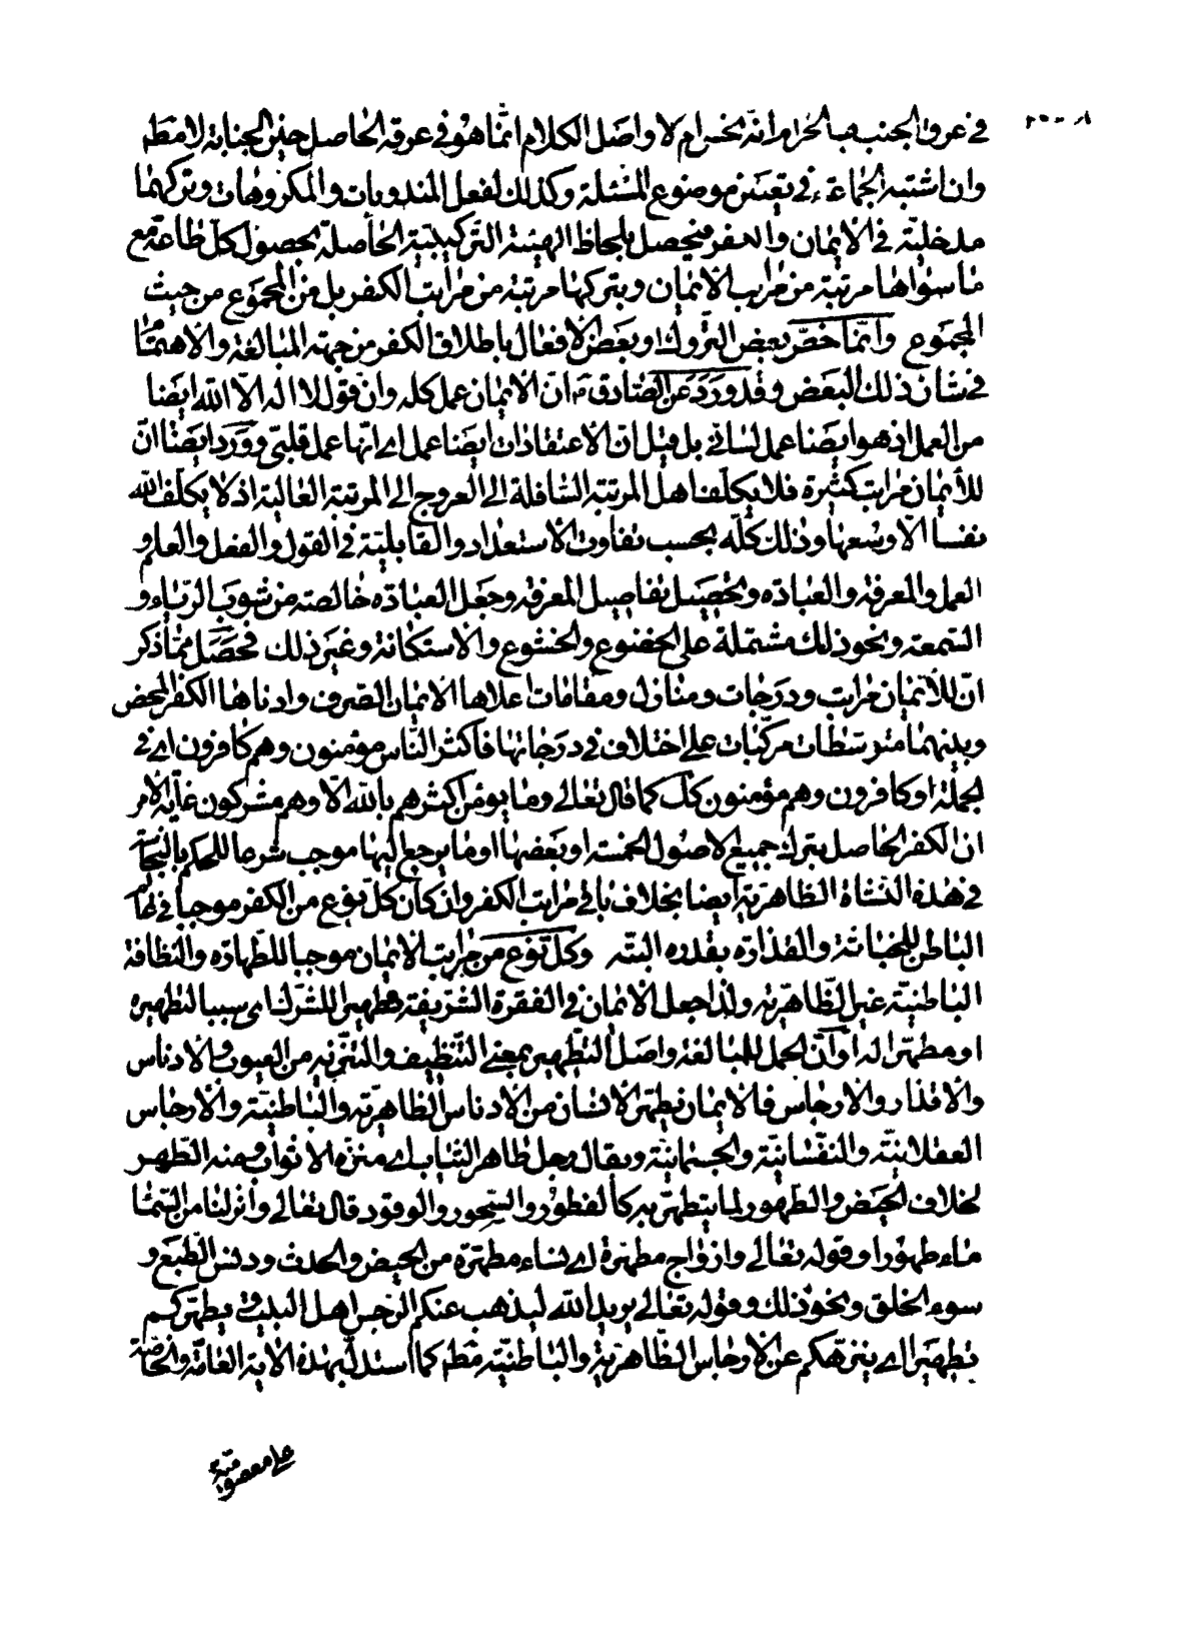 في عرق الجنب بالحرام انه نجس ام لا واصل الكلام انما هو في عرقه الحاصل حين الجنابة لا مط
وان اشتبه الجماعة في تعيين موضوع المسئلة وكذلك لفعل المندوبات والمكروهات وتركهما
مدخلية في الايمان والكفر فيحصل بلحاظ الهيئة التركيبية الحاصلة بحصول كل طاعة مع
ما سواها مرتبة من مراتب الايمان وبتركها مرتبة من مراتب الكفر بل من المجموع من حيث
المجموع وانما خص بعض التروك او بعض الافعال باطلاق الكفر من جهة المبالغة والاهتمام
في شان ذلك البعض وقد ورد عن الصادق ان الايمان عمل كله وان قول لا اله الا الله ايضا
من العمل اذ هو ايضا عمل لساني بل قيل ان الاعتقادات ايضا عمل اي انها عمل قلبي وورد ايضا ان
للأيمان مراتب كثيرة فلا يكلف اهل المرتبة السافلة الى العروج الى المرتبة العالية اذ لا يكلف الله
نفسا الا وسعها وذلك كله بحسب تفاوت الاستعداد والقابلية في القول والفعل والعلم و
العمل والمعرفة والعبادة وتحصيل تفاصيل المعرفة وجعل العبادة خالصة من شوب الرياء و
السمعة ونحو ذلك مشتملة على الخضوع والخشوع والاستكانة وغير ذلك فحصل مما ذكر
ان للأيمان مراتب ودرجات ومنازل ومقامات اعلاها الايمان الصرف وادناها الكفر المحض
وبينهما متوسطات مركبات على اختلاف في درجاتها فاكثر الناس مؤمنون وهم كافرون اي في
الجملة او كافرون وهم مؤمنون كك كما قال تعالى وما يؤمن اكثرهم بالله الا وهم مشركون غاية الامر
ان الكفر الحاصل بترك جميع الاصول الخمسة او بعضها او ما يرجع اليها موجب شرعا للحكم بالنجاسة
في هذه النشاة الظاهرية ايضا بخلاف باقي مراتب الكفر وان كان كل نوع من الكفر موجبا في عالم
الباطن للخباثة والقذارة بقدره البتة وكل نوع من مراتب الايمان موجبا للطهارة والنظافة
الباطنية غير الظاهرية ولذا جعل الايمان في الفقرة الشريفة تطهيرا للشرك اي سببا لتطهيره
او مطهرا له او ان الحمل للمبالغة واصل التطهير بمعنى التنظيف والتنزيه من العيوب والادناس
والاقذار والارجاس فالايمان يطهر الانسان من الادناس الظاهرية والباطنية والأرجاس
العقلانية والنفسانية والجسمانية ويقال رجل طاهر الثياب اي منزه الاثواب ومنه الطهر
لخلاف الحيض والطهور لما يتطهر به كالفطور والسحور والوقود قال تعالى وانزلنا من السماء
ماء طهورا وقوله تعالى وازواج مطهرة اي نساء مطهرة من الحيض والحدث ودنس الطبع و
سوء الخلق ونحو ذلك وقوله تعالى يريد الله ليذهب عنكم الرجس اهل البيت ويطهركم
تطهيرا اي ينزهكم عن الارجاس الظاهرية والباطنية مط كما استدل بهذه الاية العامة والخاصة
على معصومية